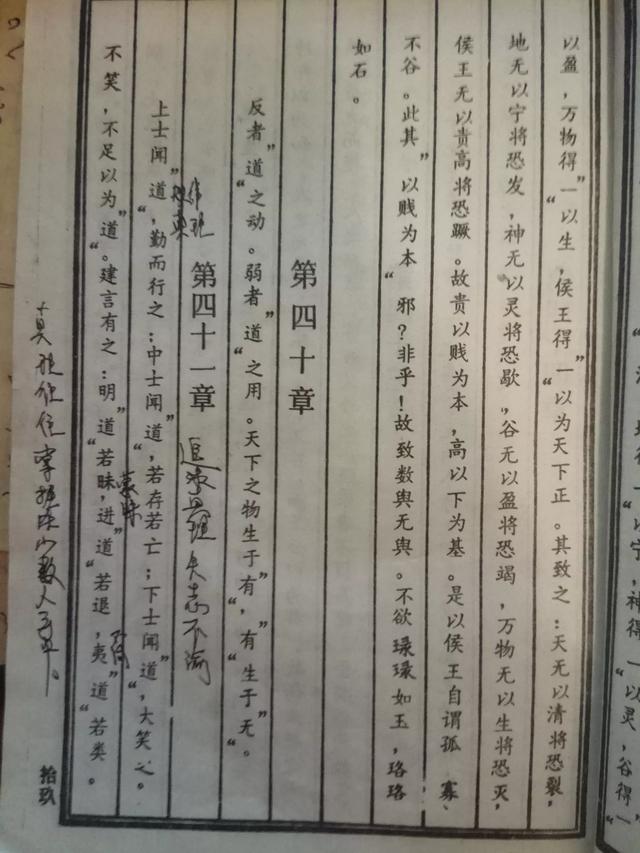 以盈，万物得“一”以生，侯王得“一”以为天下正。其致之：天无以清将恐裂，
地无以宁将恐发，神无以灵将恐歇，谷无以盈将恐竭，万物无以生将恐灭，
侯王无以贵高将恐蹶。故贵以贱为本，高以下为基。是以侯王自谓孤寡
不谷。此其”以贱为本“邪？非乎！故致数舆无舆。不欲琭琭如玉，珞珞
如石。
第四十章
反者”道“之动。弱者”道“之用。天下之物生于“有”，“有”生于“无”。
第四十一章
追求真理矢志不渝
上士闻“道”，勤而行之；中士闻“道”，若存若亡；下士闻“道”，大笑之。
不笑，不足以为“道”。建言有之：明“道”若昧，进“道”若退，夷“道”若类。
真理往往掌握在少数人手中。
拾玖